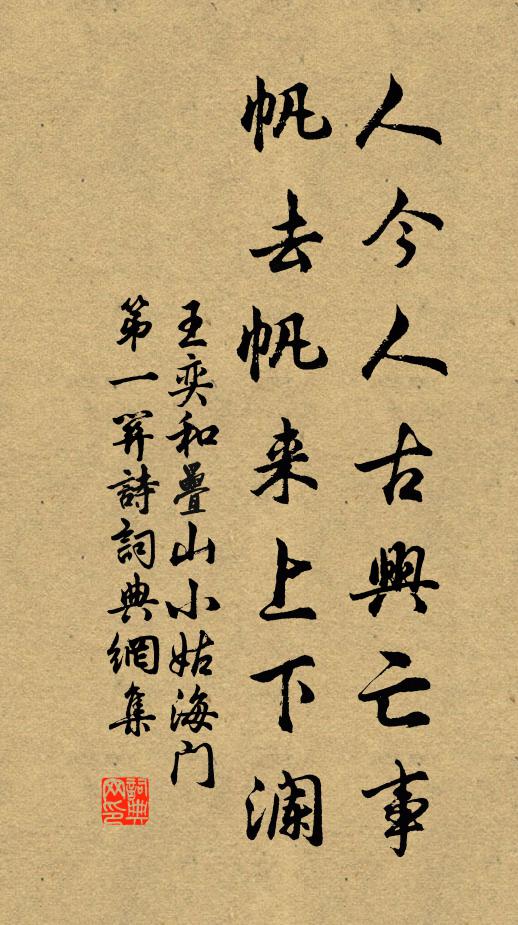 人今人古興亡事
帆去帆来上下瀾
王奕和疊山小姑海门
第一関詩詞典網集
詞典
网印